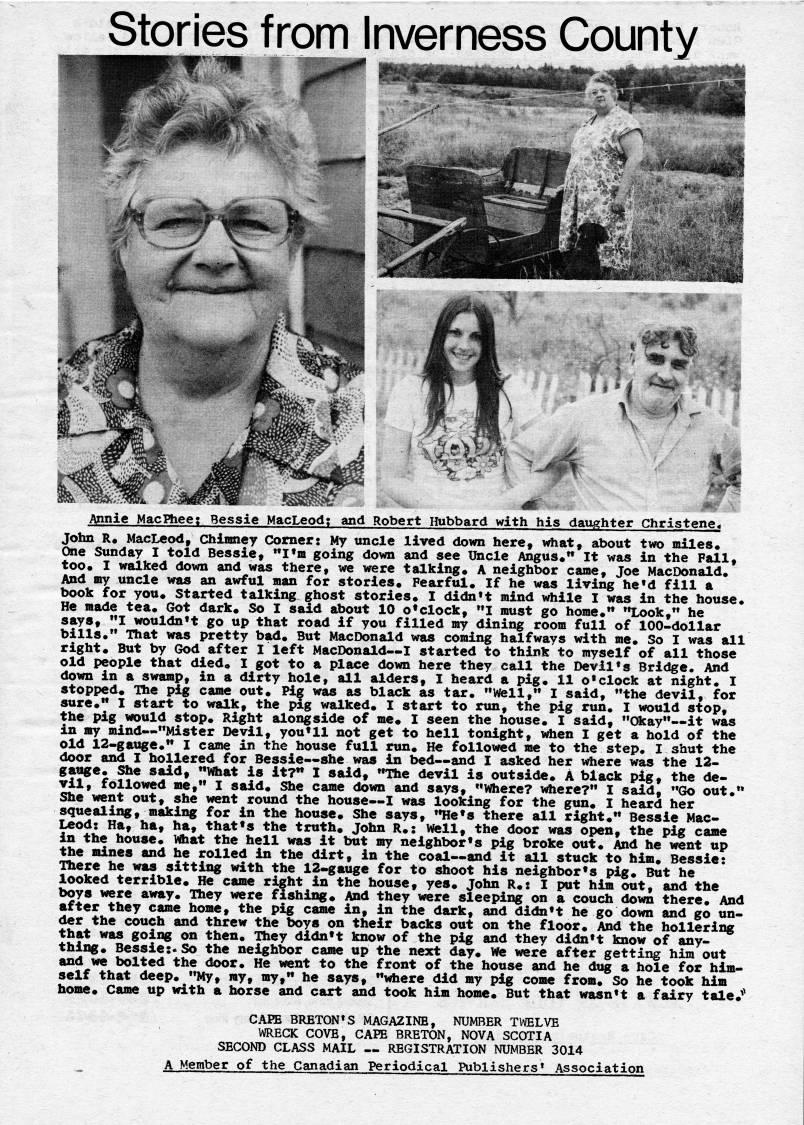 Stories from Inverness County
Annie MacPhee; Bessie MacLeod; and Robert Hubbard with his daughter Christene.
John R. MacLeod, Chimney Corner: My uncle lived down here, what, about two miles.
One Sunday I told Bessie, "I'm going down and see Uncle Angus." It was in the Fall,
too. I walked down and was there, we were talking. A neighbor came, Joe MacDonald.
And my uncle was an awful man for stories. Fearful. If he was living he'd fill a
book for you. Started talking ghost stories. I didn't mind while I was in the house.
He made tea. Got dark. So I said about 10 o'clock, "I must go home." "Look," he
says, "I wouldn't go up that road if you filled my dining room full of 100-dollar
bills." That was pretty bad. But MacDonald was coming halfways with me. So I was all
right. But by God after I left MacDonald--I started to think to myself of all those
old people that died. I got to a place down here they call the Devil's Bridge. And
down in a swamp, in a dirty hole, all alders, I heard a pig. 11 o'clock at night. I
stopped. The pig came out. Pig was as black as tar. "Well," I said, "the devil, for
sure." I start to walk, the pig walked. I start to run, the pig run. I would stop,
the pig would stop. Right alongside of me. I seen the house. I said, "Okay"--it was
in my mind--"Mister Devil, you'll not get to hell tonight, when I get a hold of the
old 12-gauge." I came in the house full run. He followed me to the step. I shut the
door and I hollered for Bessie--she was in bed--and I asked her where was the 12-
gauge. She said, "What is it?" I said, "The devil is outside. A black pig, the de-
vil, followed me," I said. She came down and says, "Where? where?" I said, "Go out."
She went out, she went round the house--I was looking for the gun. I heard her
squealing, making for in the house. She says, "He's there all right." Bessie Mac-
Leod: Ha, ha, ha, that's the truth. John R.: Well, the door was open, the pig came
in the house. What the hell was it but my neighbor's pig broke out. And he went up
the mines and he rolled in the dirt, in the coal--and it all stuck to him. Bessie:
There he was sitting with the 12-gauge for to shoot his neighbor's pig. But he
looked terrible. He came right in the house, yes. John R.: I put him out, and the
boys were away. They were fishing. And they were sleeping on a couch down there. And
after they came home, the pig came in, in the dark, and didn't he go down and go un-
der the couch and threw the boys on their backs out on the floor. And the hollering
that was going on then. They didn't know of the pig and they didn't know of any-
thing. Bessie: So the neighbor came up the next day. We were after getting him out
and we bolted the door. He went to the front of the house and he dug a hole for him-
self that deep. "My, my, my," he says, "where did my pig come from. So he took him
home. Came up with a horse and cart and took him home. But that wasn't a fairy tale."
CAPE BRETON'S MAGAZINE, NUMBER TWELVE
WRECK COVE, CAPE BRETON, NOVA SCOTIA
SECOND CLASS MAIL -- REGISTRATION NUMBER 3014
A Member of the Canadian Periodical Publishers' Association